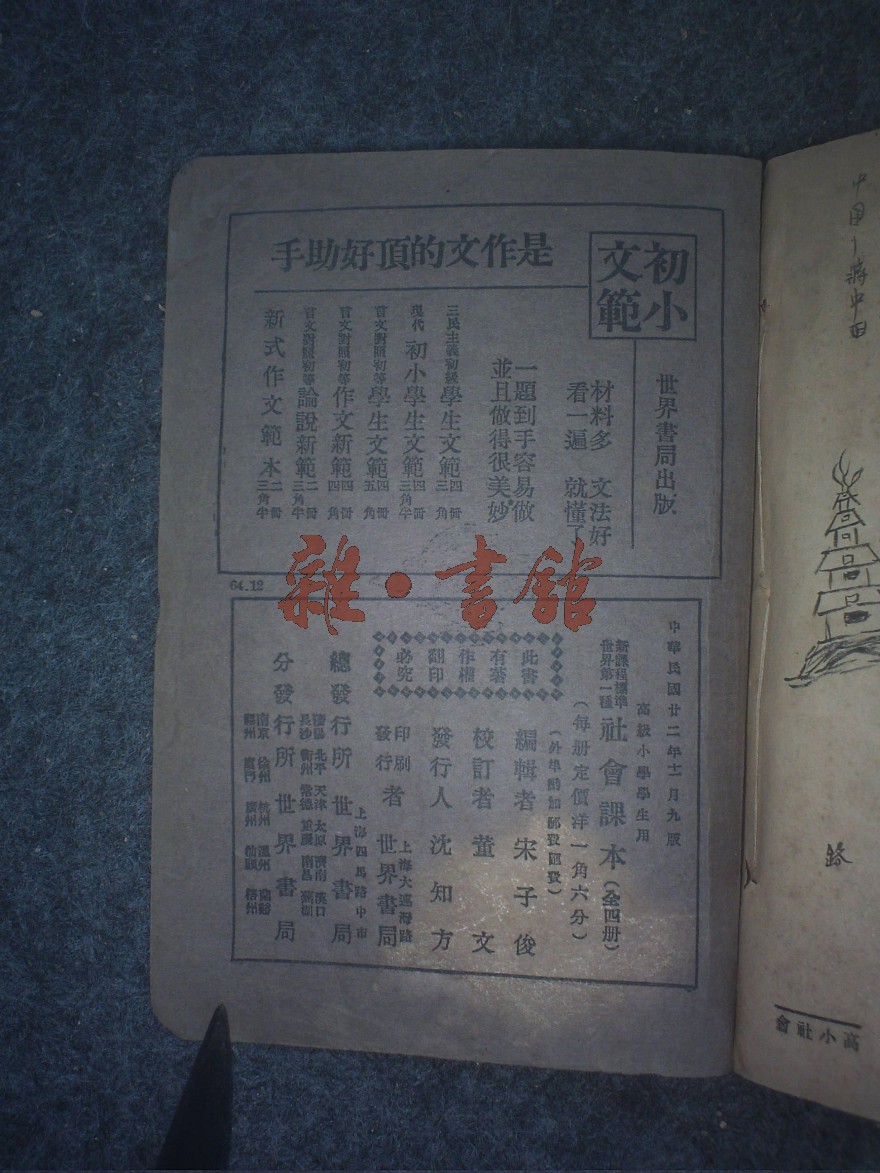 初小
文範
是作文的頂好助手
世界書局出版
材料多 文法好
看一遍 就懂了
一題到手容易做
並且做得很美妙
三民主義初級學生文範 四冊 三角
現代初小學生文範 四冊 三角半
言文對照初等學生文範 四冊 五角
言文對照初等作文新範 四冊 四角
言文對照初等論說新範 二冊 三角半
新式作文範本 二冊 三角半
64.12
雜·書館
中華民國廿二年十二月九版
高級小學學生用
新課程標準
世界第一種
社會課本(全四册)
(每册定價洋一角六分)
(外埠酌加郵費匯費)
此書
有著
作權
翻印
必究
編輯者 宋子俊
校訂者 董文
發行人 沈知方
印刷
發行
者 世界書局
上海大連灣路
總發行所 世界書局
上海四馬路中市
北平 天津 太原 濟南 漢口
長沙 衡州 常德 重慶 南昌 蕪湖
分發行所 世界書局
南京 徐州 杭州 溫州
廈門 廣州 汕頭 梧州
中国
蔣中正
路
高小社會